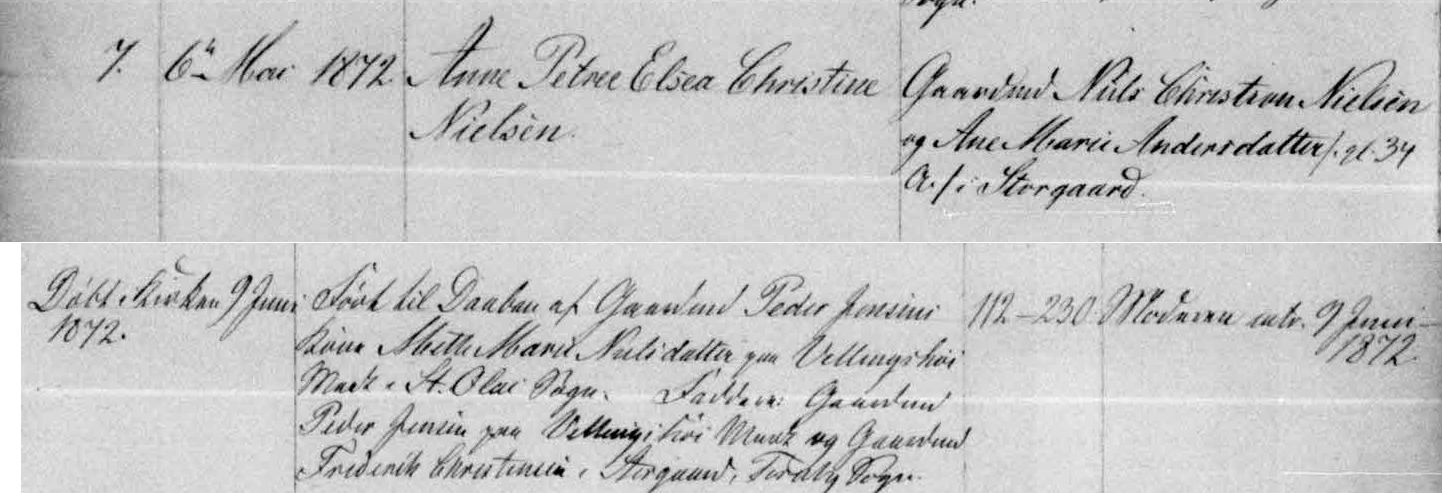 Sogn.
7. 6te Mai 1872 Anne Petree Elsea Christine Gaardmd Niels Christian Nielsen
Nielsen. og Ane Marie Andersdatter /: gl. 34
A. / i Storgaard.
Døbt i Kirken 9 Juni Baaret til Daaben af Gaardmd Peder Jensens 112 – 230 Moderen intr. 9 Juni
1872. Kone Mette Marie Nielsdatter paa Vellingshøi 1872.
Mark i St. Olai Sogn. Faddere: Gaardmd
Peder Jensen paa Vellingshøi Mark og Gaardmd
Frederik Christensen i Storgaard, Tornby Sogn.